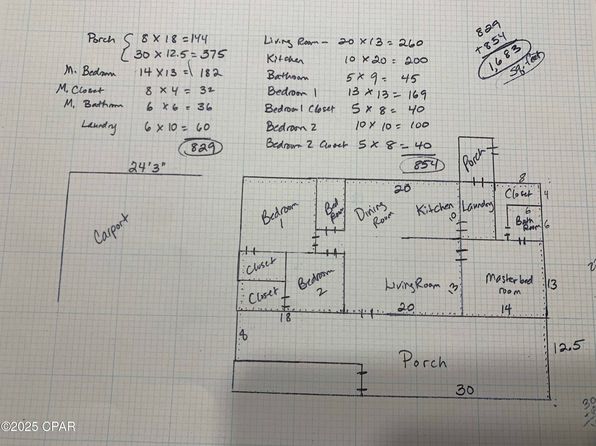 Porch { 8 x 18 = 144
30 x 12.5 = 375
M. Bedroom 14 x 13 = 182
M. Closet 8 x 4 = 32
M. Bathrom 6 x 6 = 36
Laundry 6 x 10 = 60
829
Living Room - 20 x 13 = 260
Kitchen 10 x 20 = 200
Bathroom 5 x 9 = 45
Bedroom 1 13 x 13 = 169
Bedroom 1 Closet 5 x 8 = 40
Bedroom 2 10 x 10 = 100
Bedroom 2 Closet 5 x 8 = 40
854
829
+ 854
1,683
Sq. Feet
24'3"
Carport
Porch
20
8
Bedroom
1
Dining
Room
Kitchen
10
Laundry
Closet
4
6
Bath
Room
6
Closet
Closet
Bedroom
2
Living Room
13
Master bed
room
13
18
20
14
8
Porch
12.5
30
©2025 CPAR